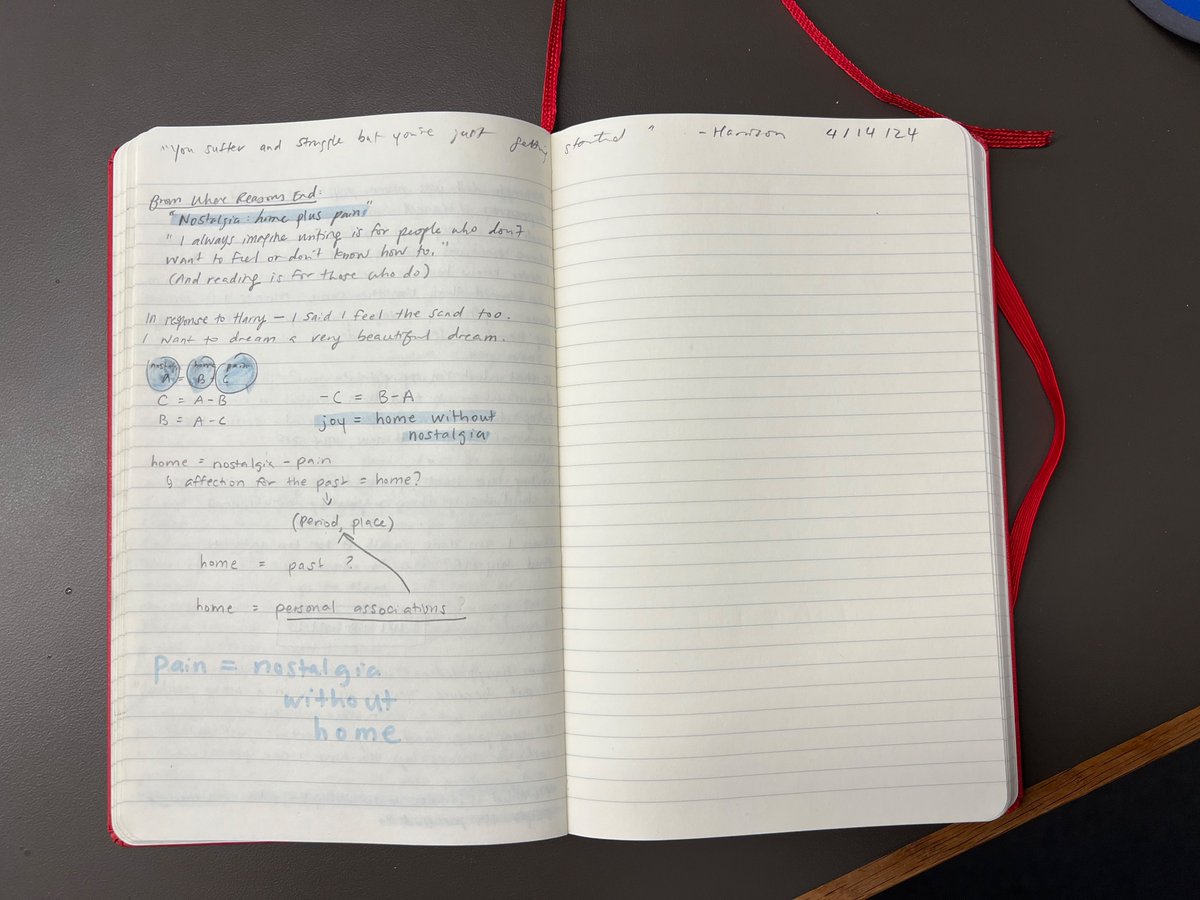 "You suffer and struggle but you're just getting started" - Harrison 4/14/24
From Where Reasons End:
"Nostalgia: home plus pain"
"I always imagine writing is for people who don't
want to feel or don't know how to."
(And reading is for those who do)
In response to Harry — I said I feel the sand too.
I want to dream a very beautiful dream.
home pain
A = B + C
C = A - B
-C = B-A
B = A - C
joy = home without
nostalgia
home = nostalgia - pain
↳ affection for the past = home?
↓
(period, place)
home = past ?
home = personal associations?
pain = nostalgia
without
home